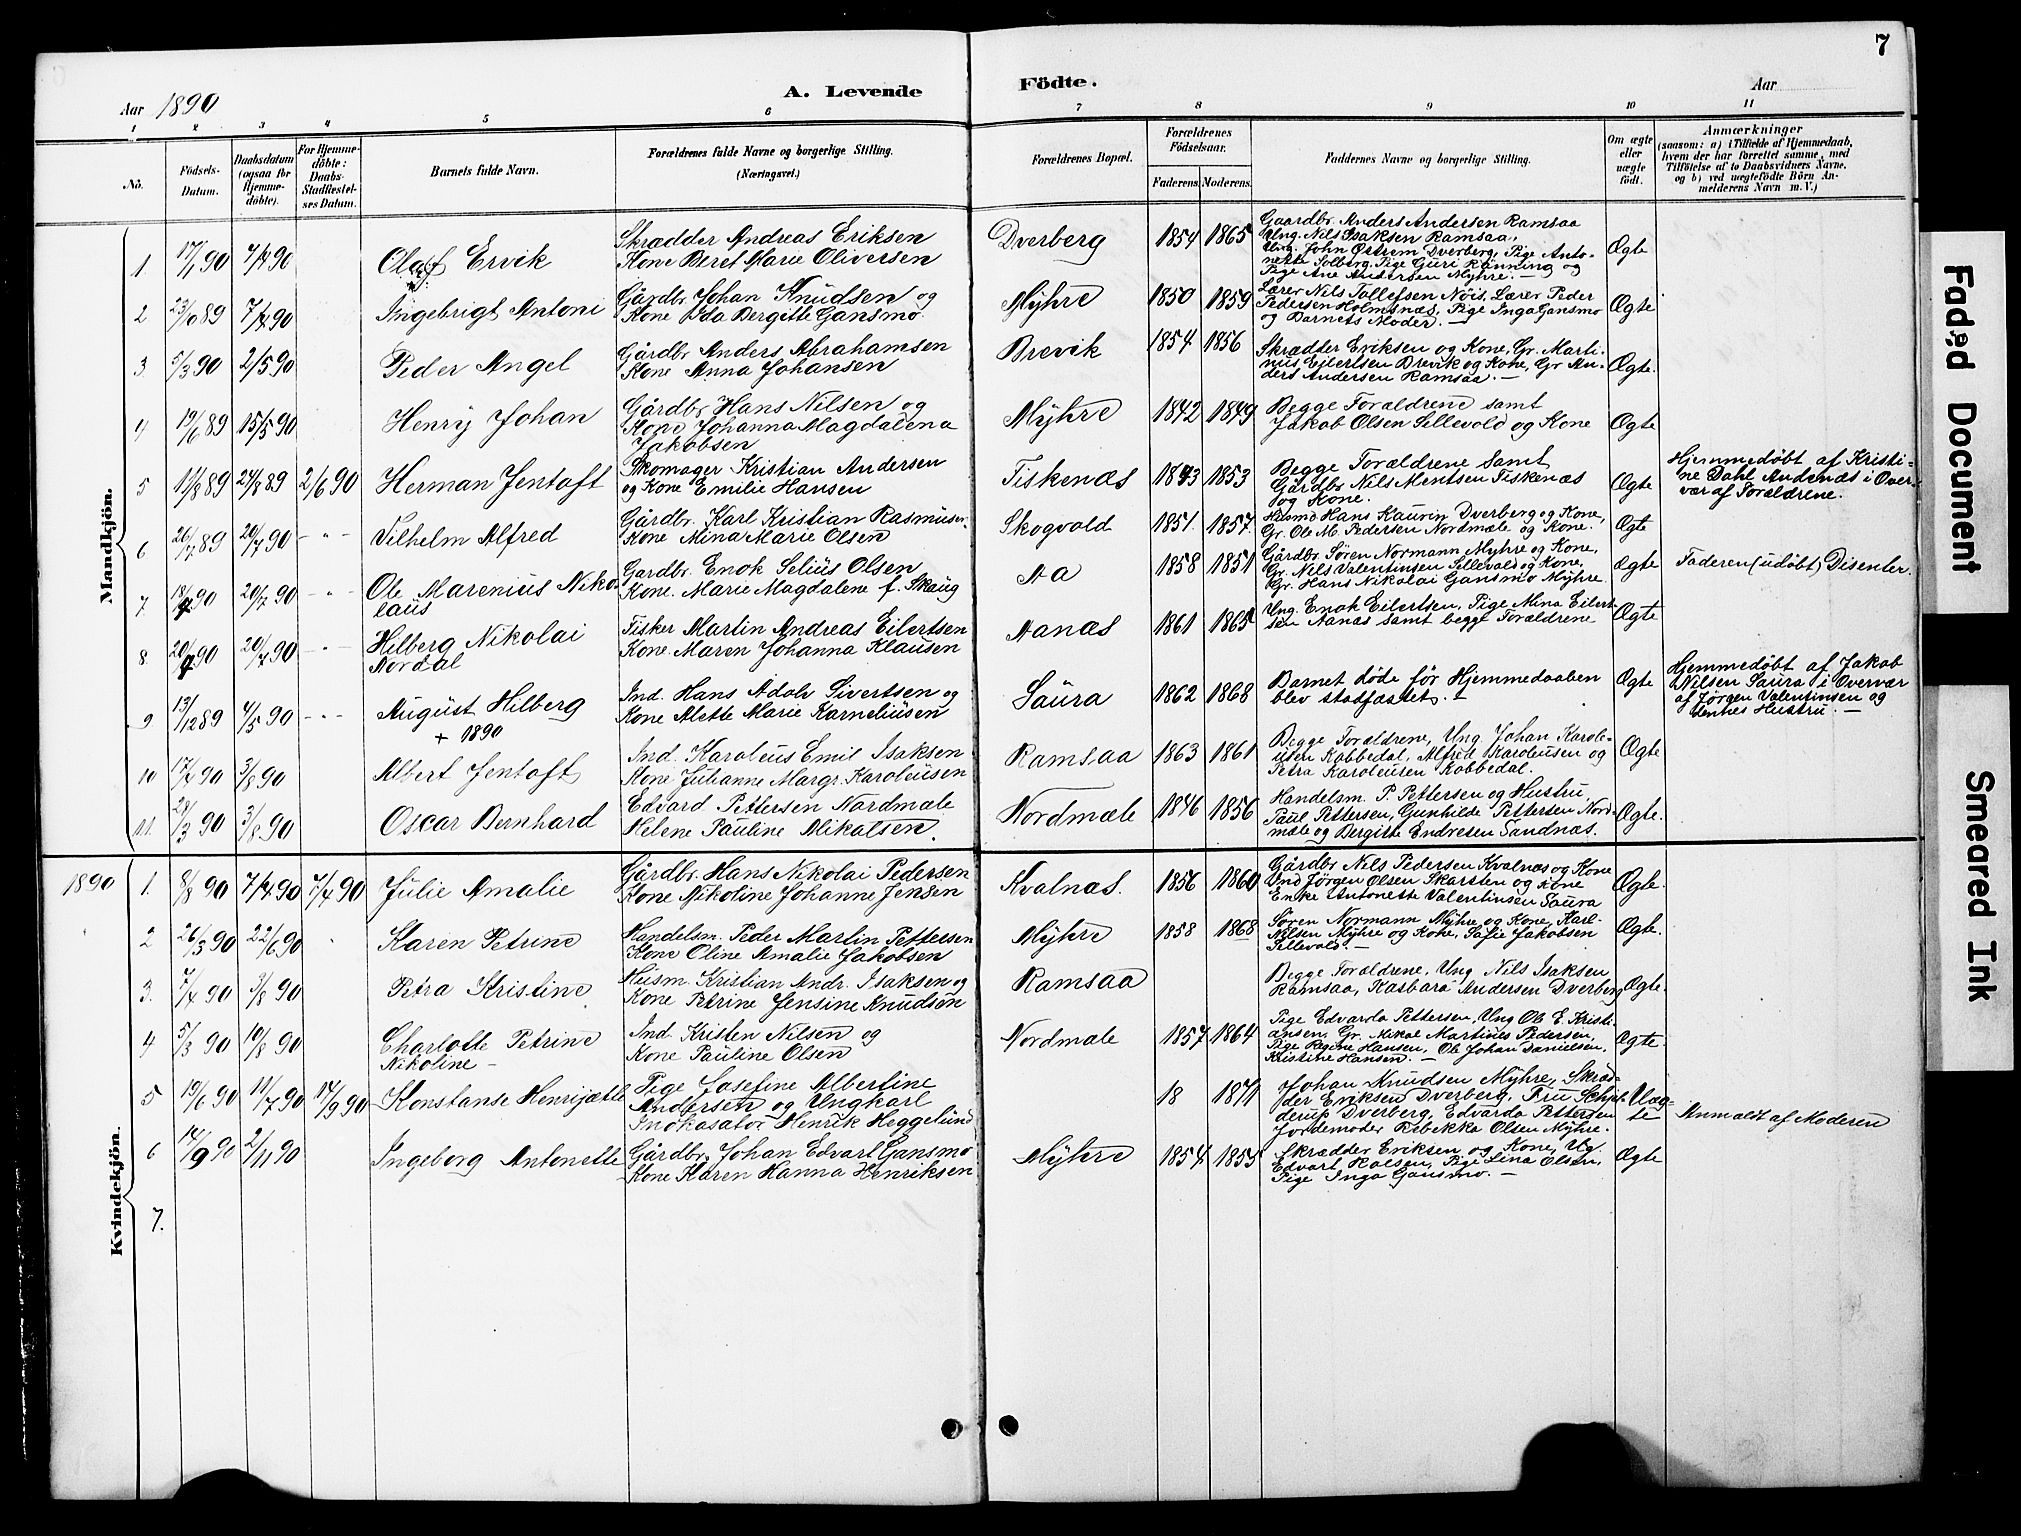 7
Aar 1890
A. Levende
Födte.
Aar
1 2 3 4 5 6 7 8 9 10 11
No.
Födsels-
Datum.
Daabsdatum
(ogsaa for
Hjemme-
döbte).
For Hjemme-
döbte:
Daabs-
Stadfæstel-
ses Datum.
Barnets fulde Navn.
Forældrenes fulde Navne og borgerlige Stilling.
(Næringsvei.)
Forældrenes Bopæl.
Forældrenes
Födselsaar.
Faderens. Moderens.
Faddernes Navne og borgerlige Stilling.
Om ægte
eller
uægte
födt.
Anmærkninger
(saasom: a) i Tilfælde af Hjemmedaab,
hvem der har forrettet samme, med
Tilföielse af to Daabsvidners Navne.
og b) ved uægtefödte Börn An-
melderens Navn m. V.)
Mandkjön.
1 17/1 90 7/4 90 Olaf Ervik
Skrædder Andreas Eriksen
Kone Beret Marie Oliversen
Dverberg 1854 1865
Gaardbr. Anders Andersen Ramsaa
Ung. Nils Isaksen Ramsaa,
Ung. John Ostrem Dverberg, Pige Anto-
nette Solberg, Pige Guri Rønning og
Pige Ane Andersen Myhre. —
Ægte
2 23/10 89 7/4 90 Ingebrigt Antoni
Gårdbr. Johan Knudsen og
Kone Ida Bergitte Gansmo.
Myhre 1850 1859
Lærer Nils Tollefsen Nöis, Lærer Peder
Pedersen Holmsnæs, Pige Inga Gansmo
og Barnets Moder. —
Ægte
3 5/3 90 2/5 90 Peder Angel
Gårdbr. Anders Abrahamsen
Kone Anna Johansen
Brevik 1854 1856
Skrædder Eriksen og Kone, Gr. Marti-
nus Eilertsen Brevik og Kone, Gr An-
ders Andersen Ramsaa. —
Ægte.
4 19/6 89 15/5 90 Henry Johan
Gårdbr. Hans Nilsen og
Kone Johanna Magdalena
Jakobsen
Myhre 1842 1849
Begge Forældrene samt
Jakob Olsen Sellevold og Kone
Ægte
5 11/8 89 24/8 89 2/6 90 Herman Jentoft
Skomager Kristian Andersen
og Kone Emilie Hansen
Fiskenæs 1843 1853
Begge Forældrene Samt
Gårdbr Nils Mentsen Fiskenæs
og Kone.
Ægte
Hjemmedøbt af Kristi-
ne Dahl Andenæs i Over-
vær af Forældrene.
6 26/7 89 20/7 90 - " - Vilhelm Alfred
Gårdbr. Karl Kristian Rasmusen
Kone Mina Marie Olsen
Skogvold 1851. 1857.
Husmd Hans Kaurin Dverberg og Kone,
Gr. Ole M. Pedersen Nordmæle og Kone.
Ægte
7. 18/4 90 20/7 90 - " - Ole Marenius Niko-
laus
Gardbr. Enok Selius Olsen
Kone. Marie Magdalene f. Skaug
Aa 1858 1851
Gårdbr. Søren Normann Myhre og Kone,
Gr Nils Valentinsen Sellevold og Kone,
Gr. Hans Nikolai Gansmo Myhre
Ægte
Faderen (udøbt) Disenter.
8. 20/4 90 20/7 90 - " - Hilberg Nikolai
Nordal
Fisker Martin Andreas Eilertsen
Kone. Maren Johanna Klausen
Aanæs 1861 1865
Ung. Enok Eilertsen, Pige Mina Eilert-
sen Aanæs samt begge Forældrene
Ægte
9 19/12 89 4/5 90 - " - August Hilberg
+ 1890
Ind. Hans Adolv Sivertsen og
Kone Alette Marie Karneliusen
Saura 1862 1868
Barnet døde før Hjemmedaaben
blev stadfæstet. +
Ægte
Hjemmedøbt af Jakob
Nilsen Saura i Overvær
af Jørgen Valentinsen og
dennes Hustru. —
10 17/4 90 3/8 90 Albert Jentoft
Ind. Karoleus Emil Isaksen
Kone Julianne Margr. Karoleusen
Ramsaa 1863 1861
Begge Forældrene, Ung. Johan Karole-
usen Kobbedal, Alfred Karoleusen og
Petra Karoleusen Kobbedal.
Ægte
11. 28/3 90 3/8 90 Oscar Bernhard
Edvard Pettersen Nordmæle
Helene Pauline Mikalsen.
Nordmæle 1846 1856
Handelsm. P. Pettersen og Hustru
Paul Pettersen, Gunhilde Pettersen Nord-
mæle og Bergitte Endresen Sandnæs.
Ægte.
Kvindekjön.
1890 1. 8/8 90 7/4 90 7/4 90 Julie Amalie
Gårdbr. Hans Nikolai Pedersen
Kone Nikoline Johanne Jensen
Kvalnæs. 1856 1860
Gårdbr Nils Pedersen Kvalnæs og Kone
Ind Jörgen Olsen Skarsten og Kone
Enke Antonette Valentinsen Saura
Ægte.
2 26/3 90 22/6 90 Karen Petrine
Handelsm. Peder Martin Pettersen
Kone Oline Amalie Jakobsen
Myhre 1858 1868
Søren Normann Myhre og Kone, Karl-
Nilsen Myhre og Kone, Sofie Jakobsen
Sellevold. —
Ægte.
3. 7/4 90 3/8 90 Petra Kristine
Husm. Kristian Andr. Isaksen og
Kone Petrine Jensine Knudson
Ramsaa
Begge Forældrene, Ung Nils Isaksen
Ramsaa, Kasbara Andersen Dverberg
Ægte.
4 5/3 90 10/8 90 Charlotte Petrine
Nikoline —
Ind. Kristen Nilsen og
Kone Pauline Olsen
Nordmæle 1857 1864
Pige Edvarda Pettersen, Ung Ole E. Kristi-
ansen, Gr. Mikal Martinus Pedersen,
Pige Regine Hansen, Ole Johan Danielsen,
Kristine Hansen. —
Ægte
5 19/6 90 11/7 90 14/9 90 Konstanse Henrijætte
Pige Josefine Albertine
Andersen og Ungkarl
Inokasator Henrik Heggelund
18 1871
Johan Knudsen Myhre, Skræd-
der Eriksen Dverberg, Fru Schjel-
derup Dverberg, Edvarda Pettersen
Jordemoder Rebekka Olsen Myhre.
Uæg-
te
Anmeldt af Moderen
6 14/9 90 2/11 90 Ingeborg Antonette
Gårdbr. Johan Edvart Gansmo
Kone Karen Hanna Henriksen
Myhre 1854 1855
Skrædder Eriksen og Kone, Ug
Edvart Kolsen, Pige Lina Olsen,
Pige Inga Gansmo. —
Ægte
7.
Faded Document
Smeared Ink